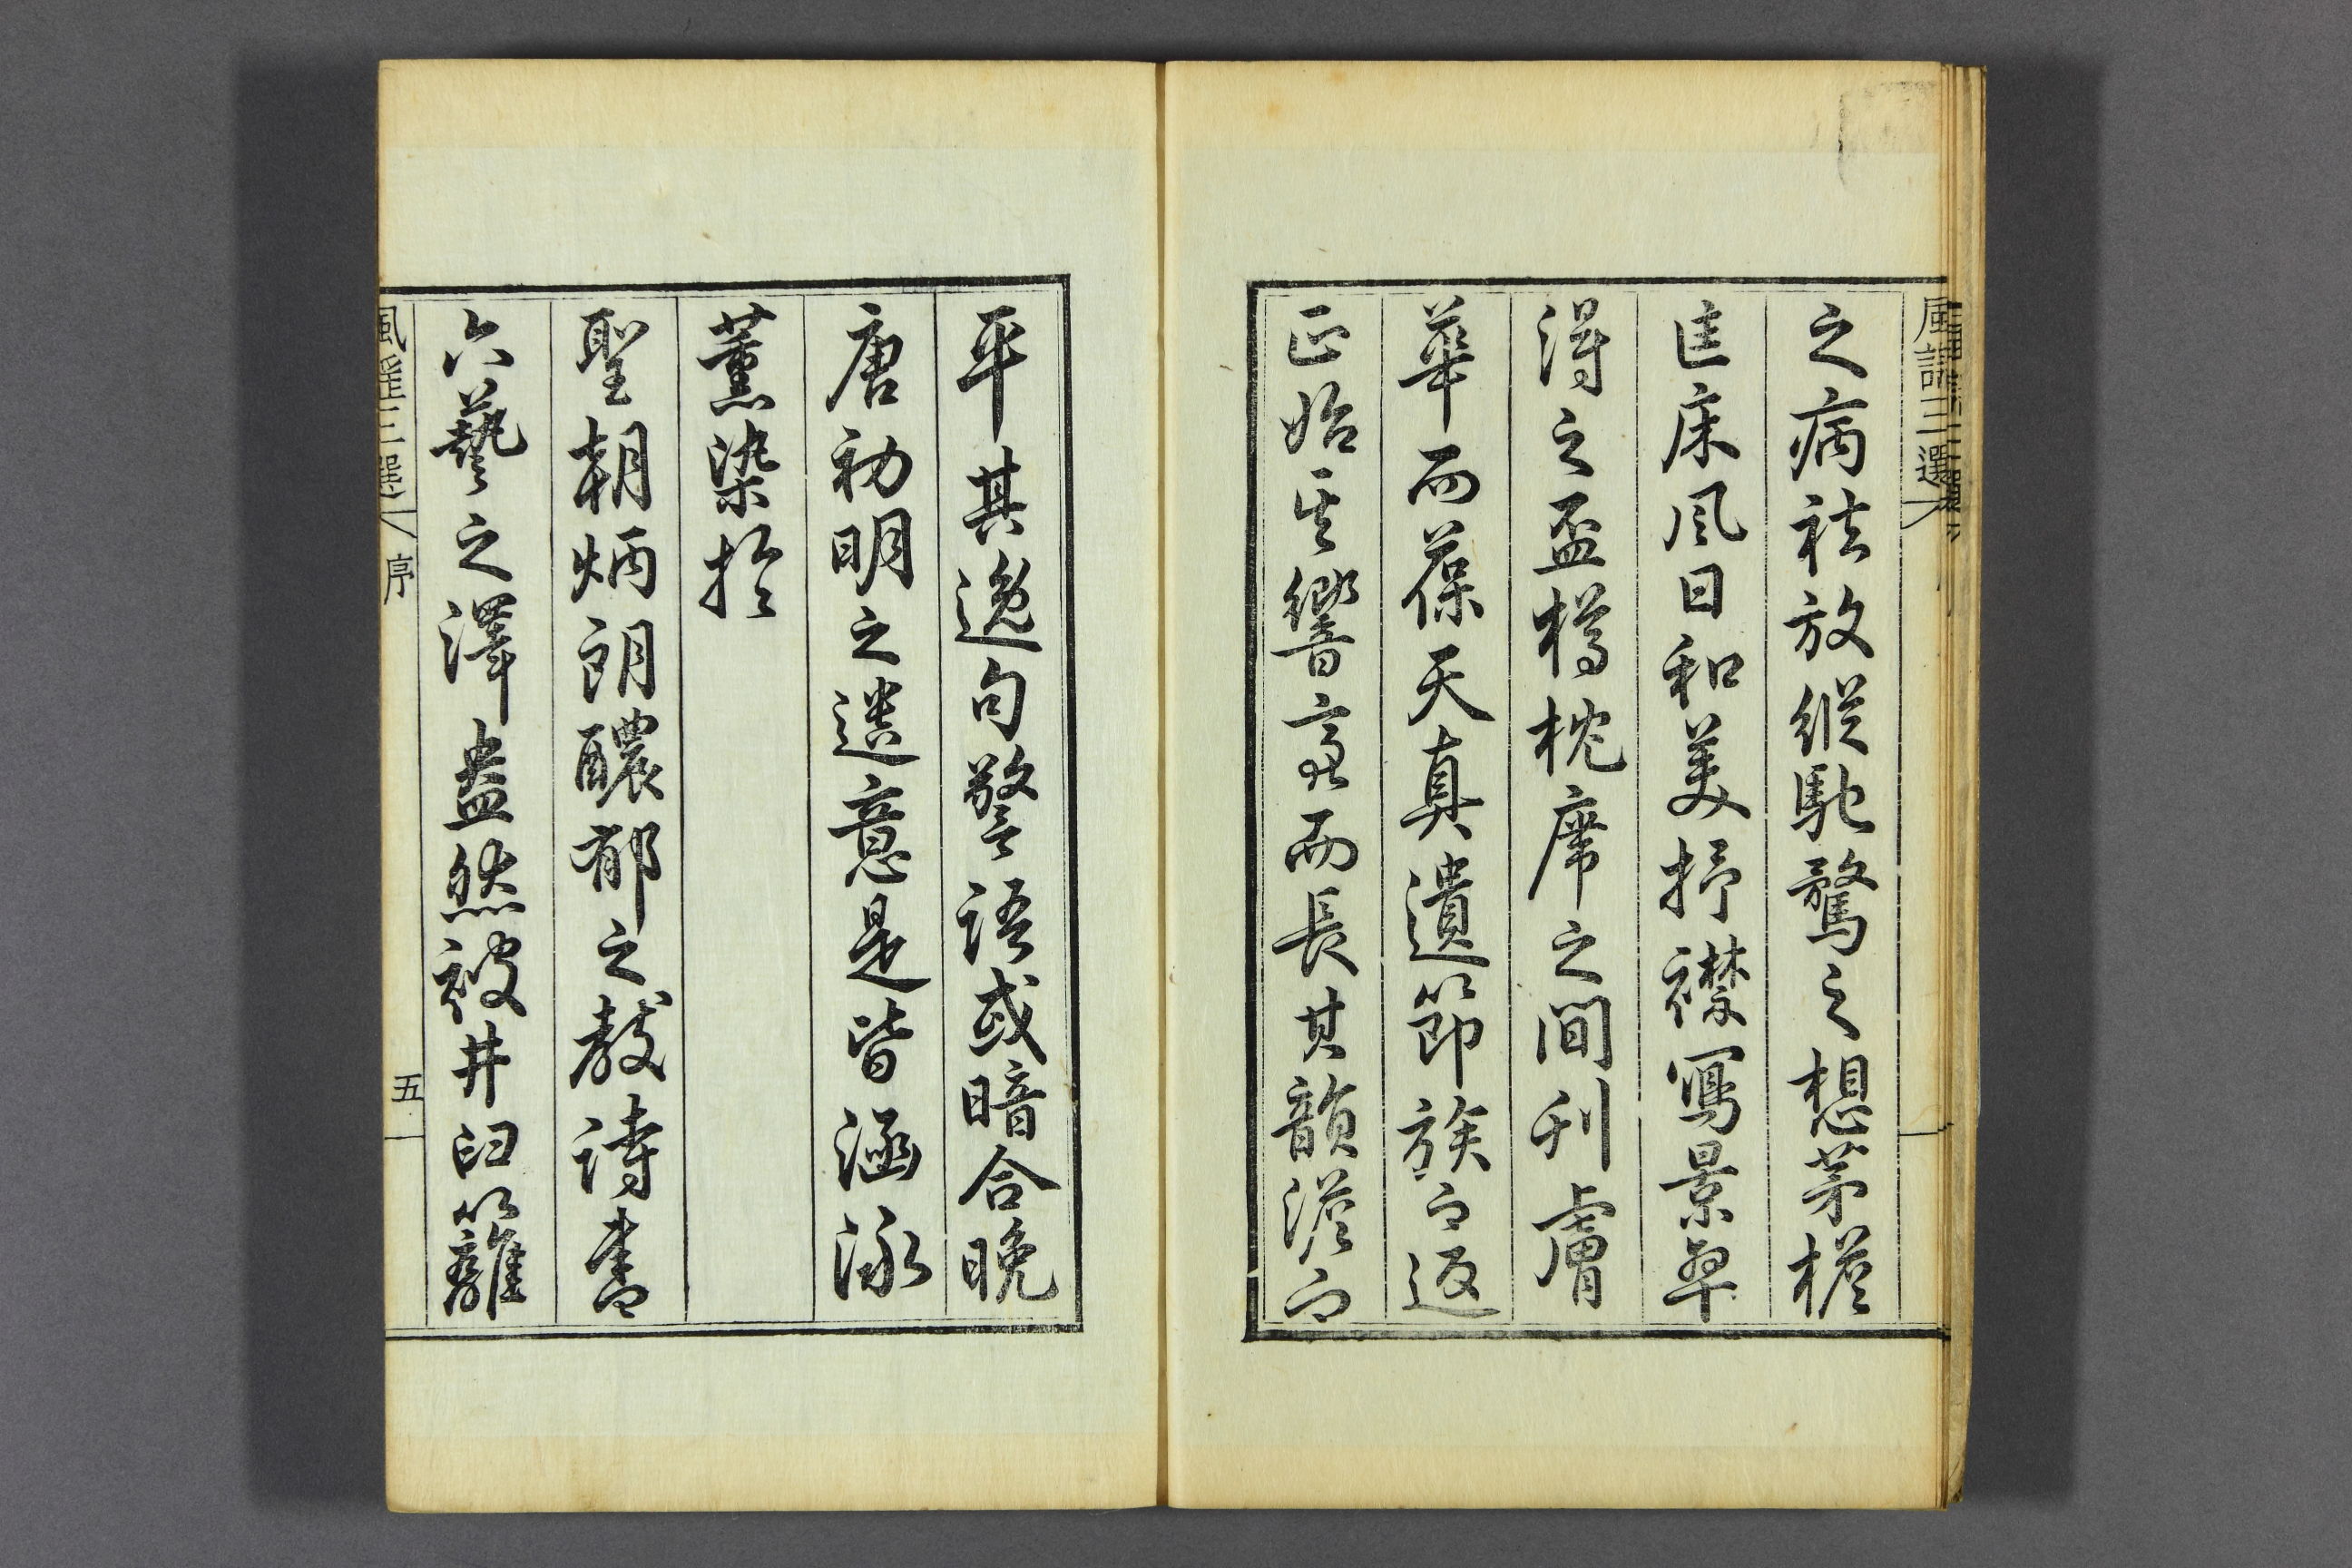 風謠三選
之病祛放縱馳騖之想茅檐
匡床風日和美抒襟寫景率
得之盃樽枕席之間刊膚
華而葆天眞遺節族而返
正始其響高而長其韻淡而
平其逸句警語或暗合晚
唐初明之遺意是皆涵泳
薰染於
聖朝炳朗醲郁之教詩書
六藝之澤盎然被井臼籬
風謠三選 序 五